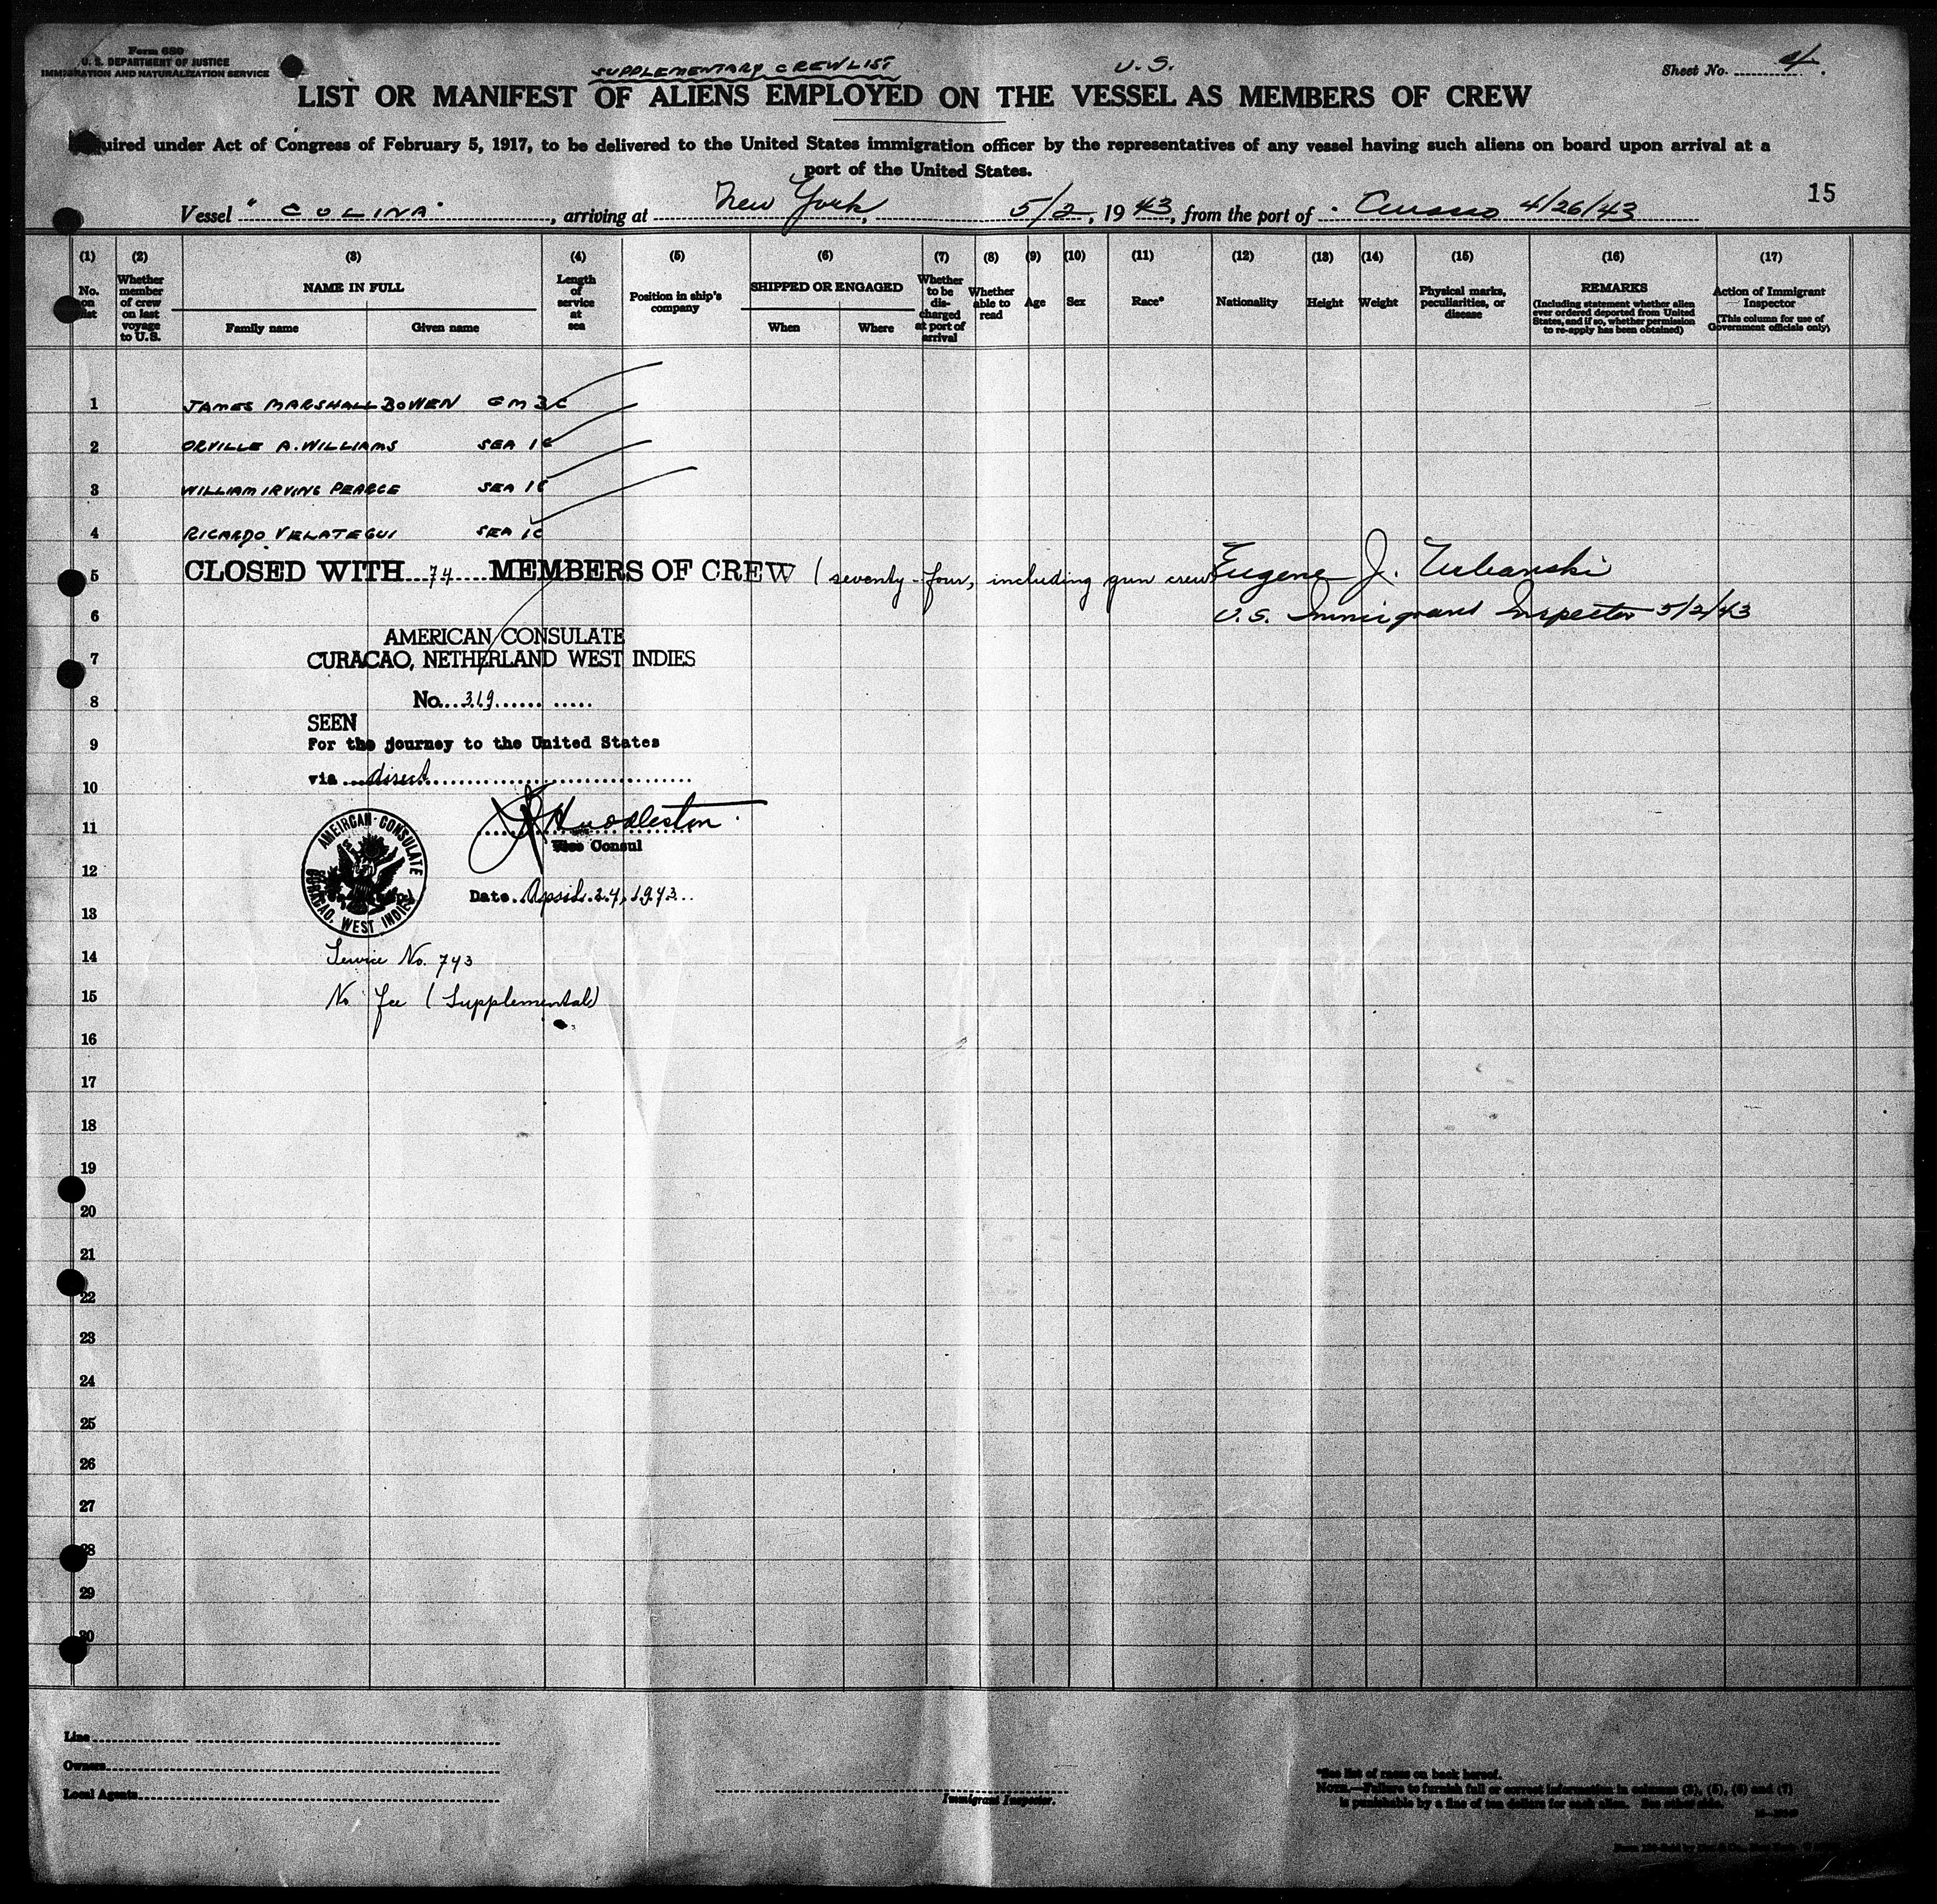 Form 680
U. S. DEPARTMENT OF JUSTICE
IMMIGRATION AND NATURALIZATION SERVICE
SUPPLEMENTARY CREW LIST
U.S.
Sheet No. 4
LIST OR MANIFEST OF ALIENS EMPLOYED ON THE VESSEL AS MEMBERS OF CREW
uired under Act of Congress of February 5, 1917, to be delivered to the United States immigration officer by the representatives of any vessel having such aliens on board upon arrival at a
port of the United States.
15
Vessel "COLINA", arriving at New York, 5/2, 1943, from the port of Curacao 4/26/43
(1) (2) (3) (4) (5) (6) (7) (8) (9) (10) (11) (12) (13) (14) (15) (16) (17)
No. on list
Whether member of crew on last voyage to U.S.
NAME IN FULL
Family name Given name
Length of service at sea
Position in ship's company
SHIPPED OR ENGAGED
When Where
Whether to be discharged at port of arrival
Whether able to read
Age
Sex
Race*
Nationality
Height
Weight
Physical marks, peculiarities, or disease
REMARKS
(Including statement whether alien ever ordered deported from United States, and if so, whether permission to re-apply has been obtained)
Action of Immigrant Inspector
(This column for use of Government officials only)
1 JAMES MARSHALL BOWEN GM 3C
2 ORVILLE A. WILLIAMS SEA 1C
3 WILLIAM IRVING PEARCE SEA 1C
4 RICARDO VELATEGUI SEA 1C
5 CLOSED WITH 74 MEMBERS OF CREW (seventy-four, including gun crew Eugene J. Urbanski
6 U.S. Immigrant Inspector 5/2/43
AMERICAN CONSULATE
7 CURACAO, NETHERLAND WEST INDIES
8 No. 319
SEEN
9 For the journey to the United States
via direct
10
11 Huddleston
Vice Consul
AMEIRCAN CONSULATE
CURACAO, WEST INDIES
12
Date April 24, 1943
13
14 Service No. 743
15 No fee (Supplemental)
16
17
18
19
20
21
22
23
24
25
26
27
28
29
30
Line
Owners
Local Agents
Immigrant Inspector.
*See list of races on back hereof.
NOTE.—Failure to furnish full or correct information in columns (3), (5), (6) and (7)
is punishable by a fine of ten dollars for each alien. See other side.